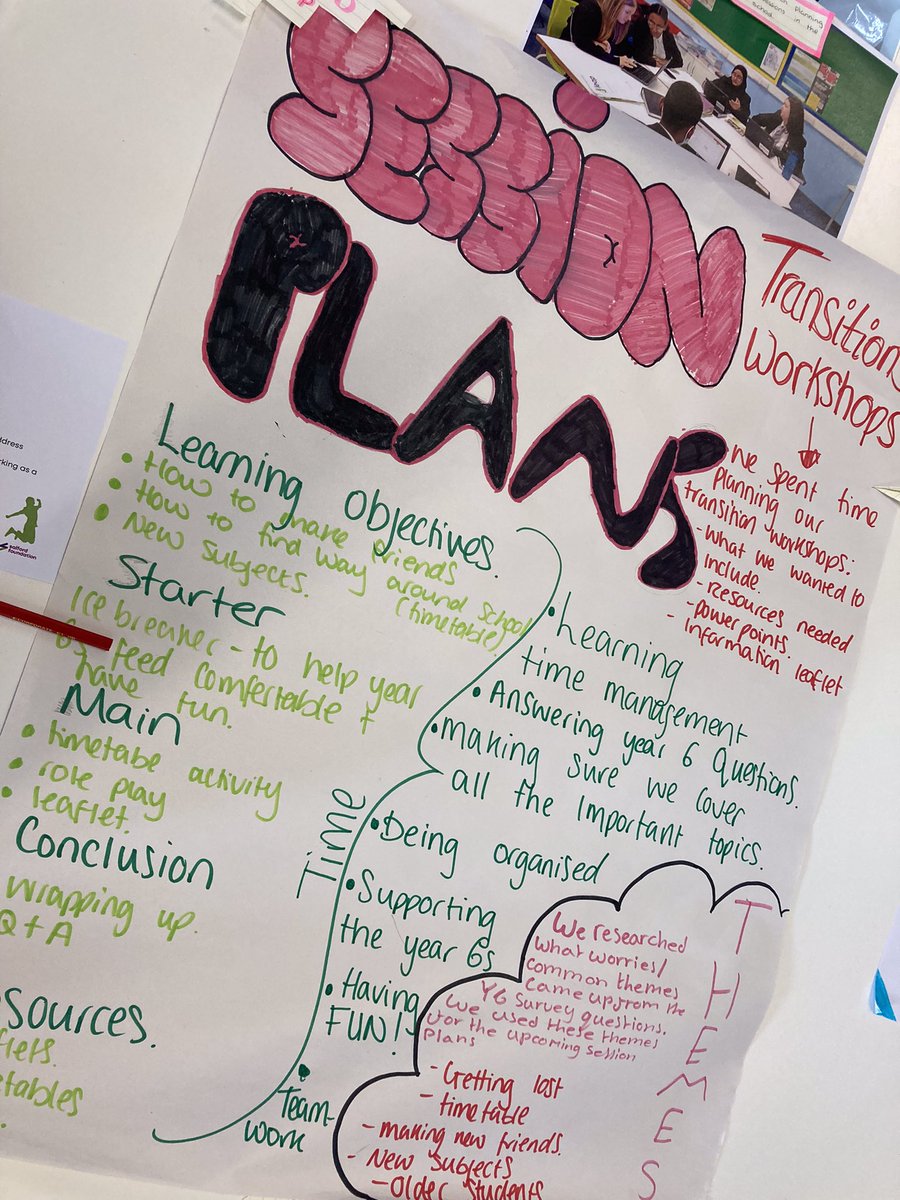 SESSION
PLANS
Transitions
Workshops
We spent time
planning our
transition workshops:
- what we wanted to
include.
- resources needed
- powerpoints.
- Information leaflet
Learning Objectives.
• How to make friends
• How to find way around school
(timetable)
• New subjects.
Starter
Ice breaker - to help year
feed comfertable +
have fun.
Main
• timetabe activity
• role play
• leaflet.
Conclusion
wrapping up.
Q + A
sources.
flets.
etables
Time
• Learning
time management
• Answering year 6 Questions.
• making sure we cover
all the important topics.
• Being organised
• Supporting
the year 6s
• Having
FUN!
• Team-
work
THEMES
We researched
what worries/
common themes
came up from the
Y6 survey questions.
We used these themes
for the upcoming session
plans
- Getting lost
- timetable
- making new friends.
- New subjects
- Older students
ddress
rking as a
salford
foundation
planning
sessions in the
school.